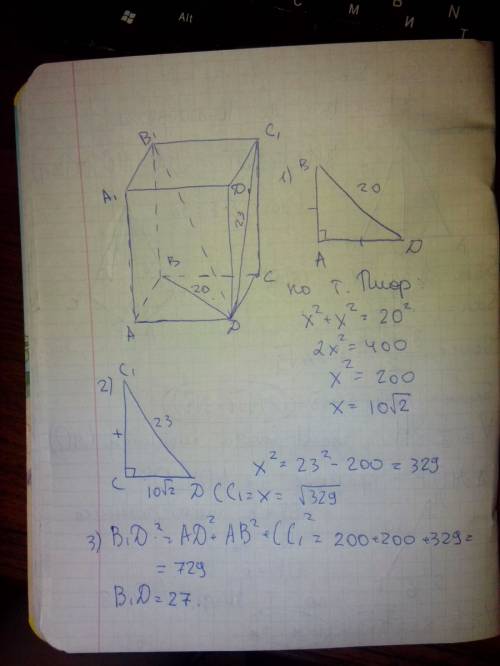 Alt
С
М
В
И
N
Т
B₁
C₁
A₁
D₁
23
B
C
20
A
D
1)
B
20
A
D
по т. Пифор:
x² + x² = 20²
2x² = 400
x² = 200
x = 10√2
2)
C₁
23
x
C
10√2
D
x² = 23² - 200 = 329
CC₁ = x = √329
3) B₁D² = AD² + AB² + CC₁² = 200 + 200 + 329 =
= 729
B₁D = 27.